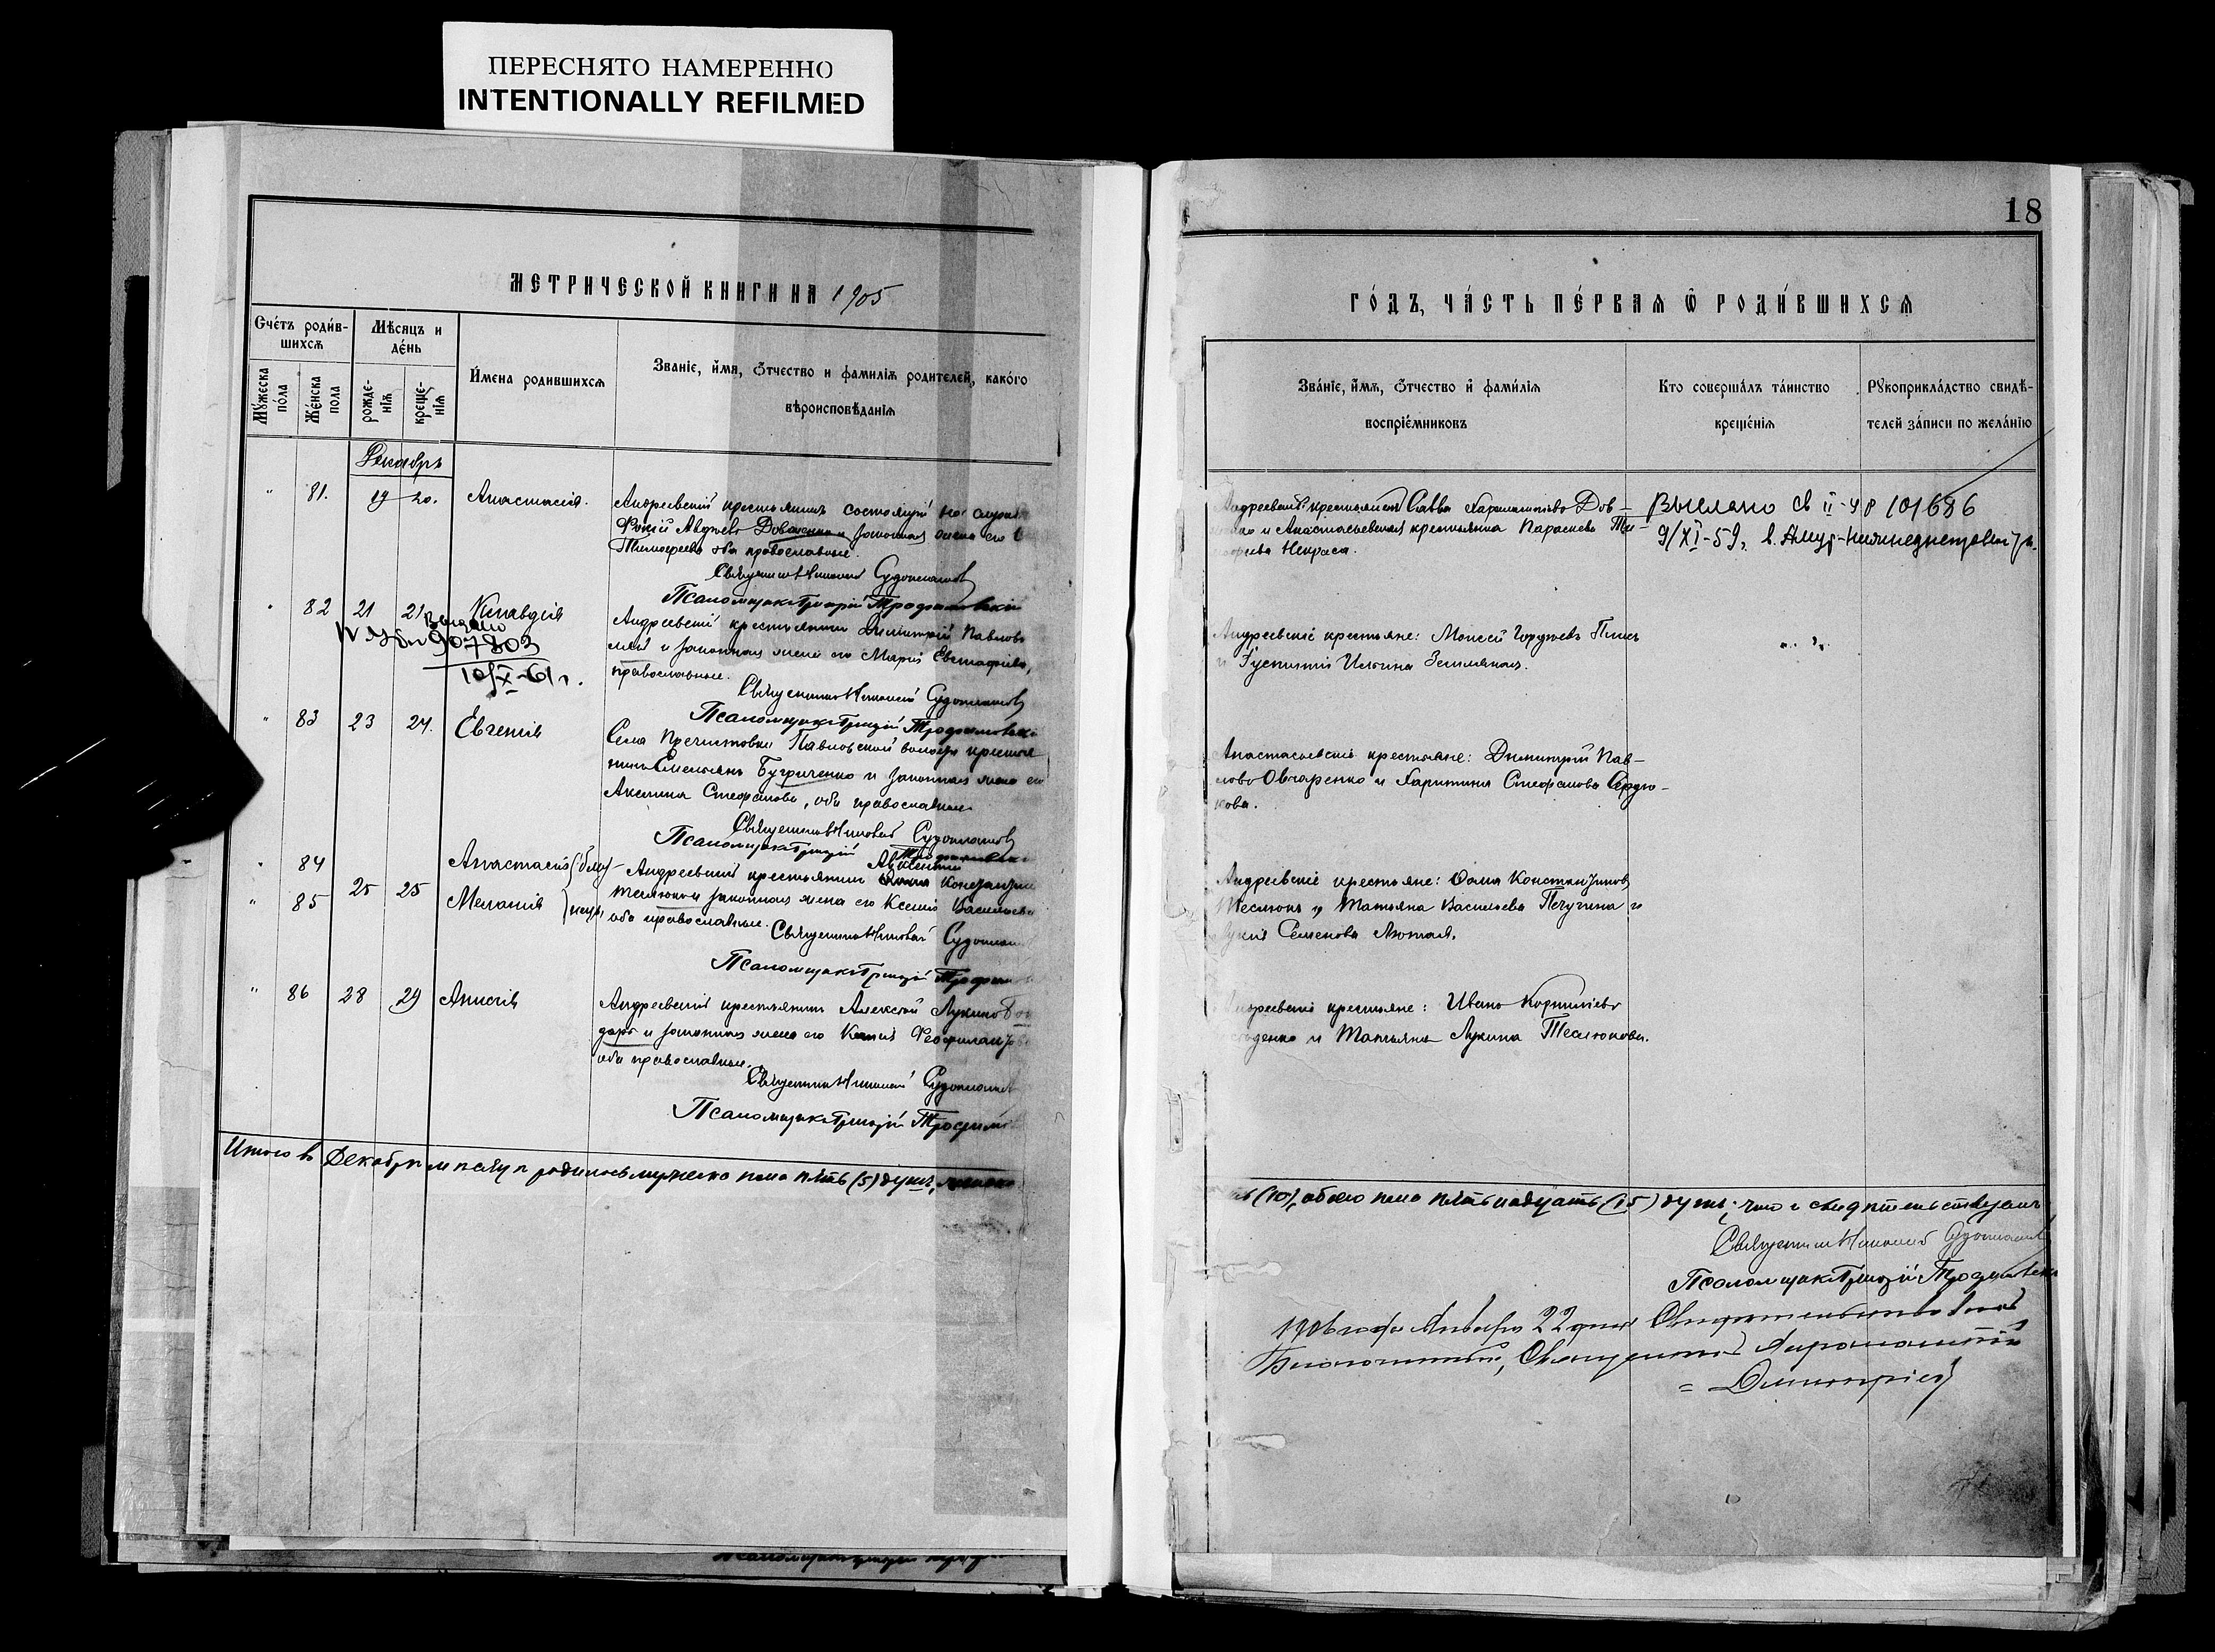 ПЕРЕСНЯТО НАМЕРЕННО
INTENTIONALLY REFILMED
МЕТРИЧЕСКОЙ КНИГИ НА 1905
Счétъ роди́в-
шихсѧ
Мѣ́сяцъ и
де́нь
Мꙋ́жеска
по́ла
Же́нска
пола
рожде-
нїѧ
креще-
нїѧ
И́мена родившихсѧ
Званїе, и́мя, ѻтчество и фамилїѧ родителей, како́го
вѣроисповѣданїѧ
Декабрь
" 81. 19 20. Анастасія.
Андреевскій крестьянинъ состоящій на
Фокій Авдіевъ Доваченко и законная жена его
Тимофеева оба православные.
Священникъ Николай Судоплатовъ
Псаломщикъ Григорій Трофимовскій
" 82 21 21 Клавдія
Выдано
907803
10/X-61 г.
Андреевскій крестьянинъ Димитрій Павловъ
и законная жена его Марія Евстафіева,
православные.
Священникъ Николай Судоплатовъ
Псаломщикъ Григорій Трофимовскі
" 83 23 24. Евгенія
Села Пречистовки Павловской волости крестья
нинъ Емельянъ Бугриченко и законная жена его
Акилина Стефанова, оба православные
Священникъ Николай Судоплатовъ
Псаломщикъ Григорій
" 84 Анастасія (близ-
" 85 25 25 Меланія нецы)
Андреевскій крестьянинъ Авксентій Константин
Теслюкъ и законная жена его Ксенія Васильева
оба православные.
Священникъ Николай Судоплат
Псаломщикъ Григорій Трофим
" 86 28 29 Анисія
Андреевскій крестьянинъ Алексій Лукинъ Бон
даръ и законная жена его Ксенія Феофилак
оба православные.
Священникъ Николай Судоплатов
Псаломщикъ Григорій Трофимо
Итого въ Декабрѣ мѣсяцѣ родилось мужеска пола пять (5) душъ, женска
18
ГО́ДЪ, ЧА́СТЬ ПЕ́РВАѦ Ѽ РОДИ́ВШИХСѦ
Зва́нїе, и́мѧ, ѻ́тчество и́ фами́лїѧ
воспрїе́мниковъ
Кто соверша́лъ та́инство
креще́нїѧ
Рꙋкоприкла́дство свидѣ-
телей за́писи по жела́нїю
Андреевскій крестьянинъ Савва Харлампіевъ Дов-
и Анастасьевская крестьянка Параскева Ти-
мофеева Некраса.
Выслано св II-УР 101686
9/XI-59г.
Андреевскіе крестьяне: Моисей
Ильина Земляная.
" "
Анастасьевскіе крестьяне: Димитрій Пав-
ловъ Овчаренко и Харитина Стефанова Сердю-
кова.
Андреевскіе крестьяне: Фома Константиновъ
Теслюкъ и Татьяна Васильева Печугина и
Семенова Лютая.
Андреевскіе крестьяне: Иванъ Корниліевъ
и Татьяна Лукина Теслюкова.
ть (10), обоего пола пятьнадцать (15) душъ; что и свидѣтельствуемъ
Священникъ Николай Судоплатовъ
Псаломщикъ Григорій Трофимовскі
1906 года Января 22 дня Свидѣтельствовалъ
Благочинный, Священникъ Харлампій
= Димитріевъ